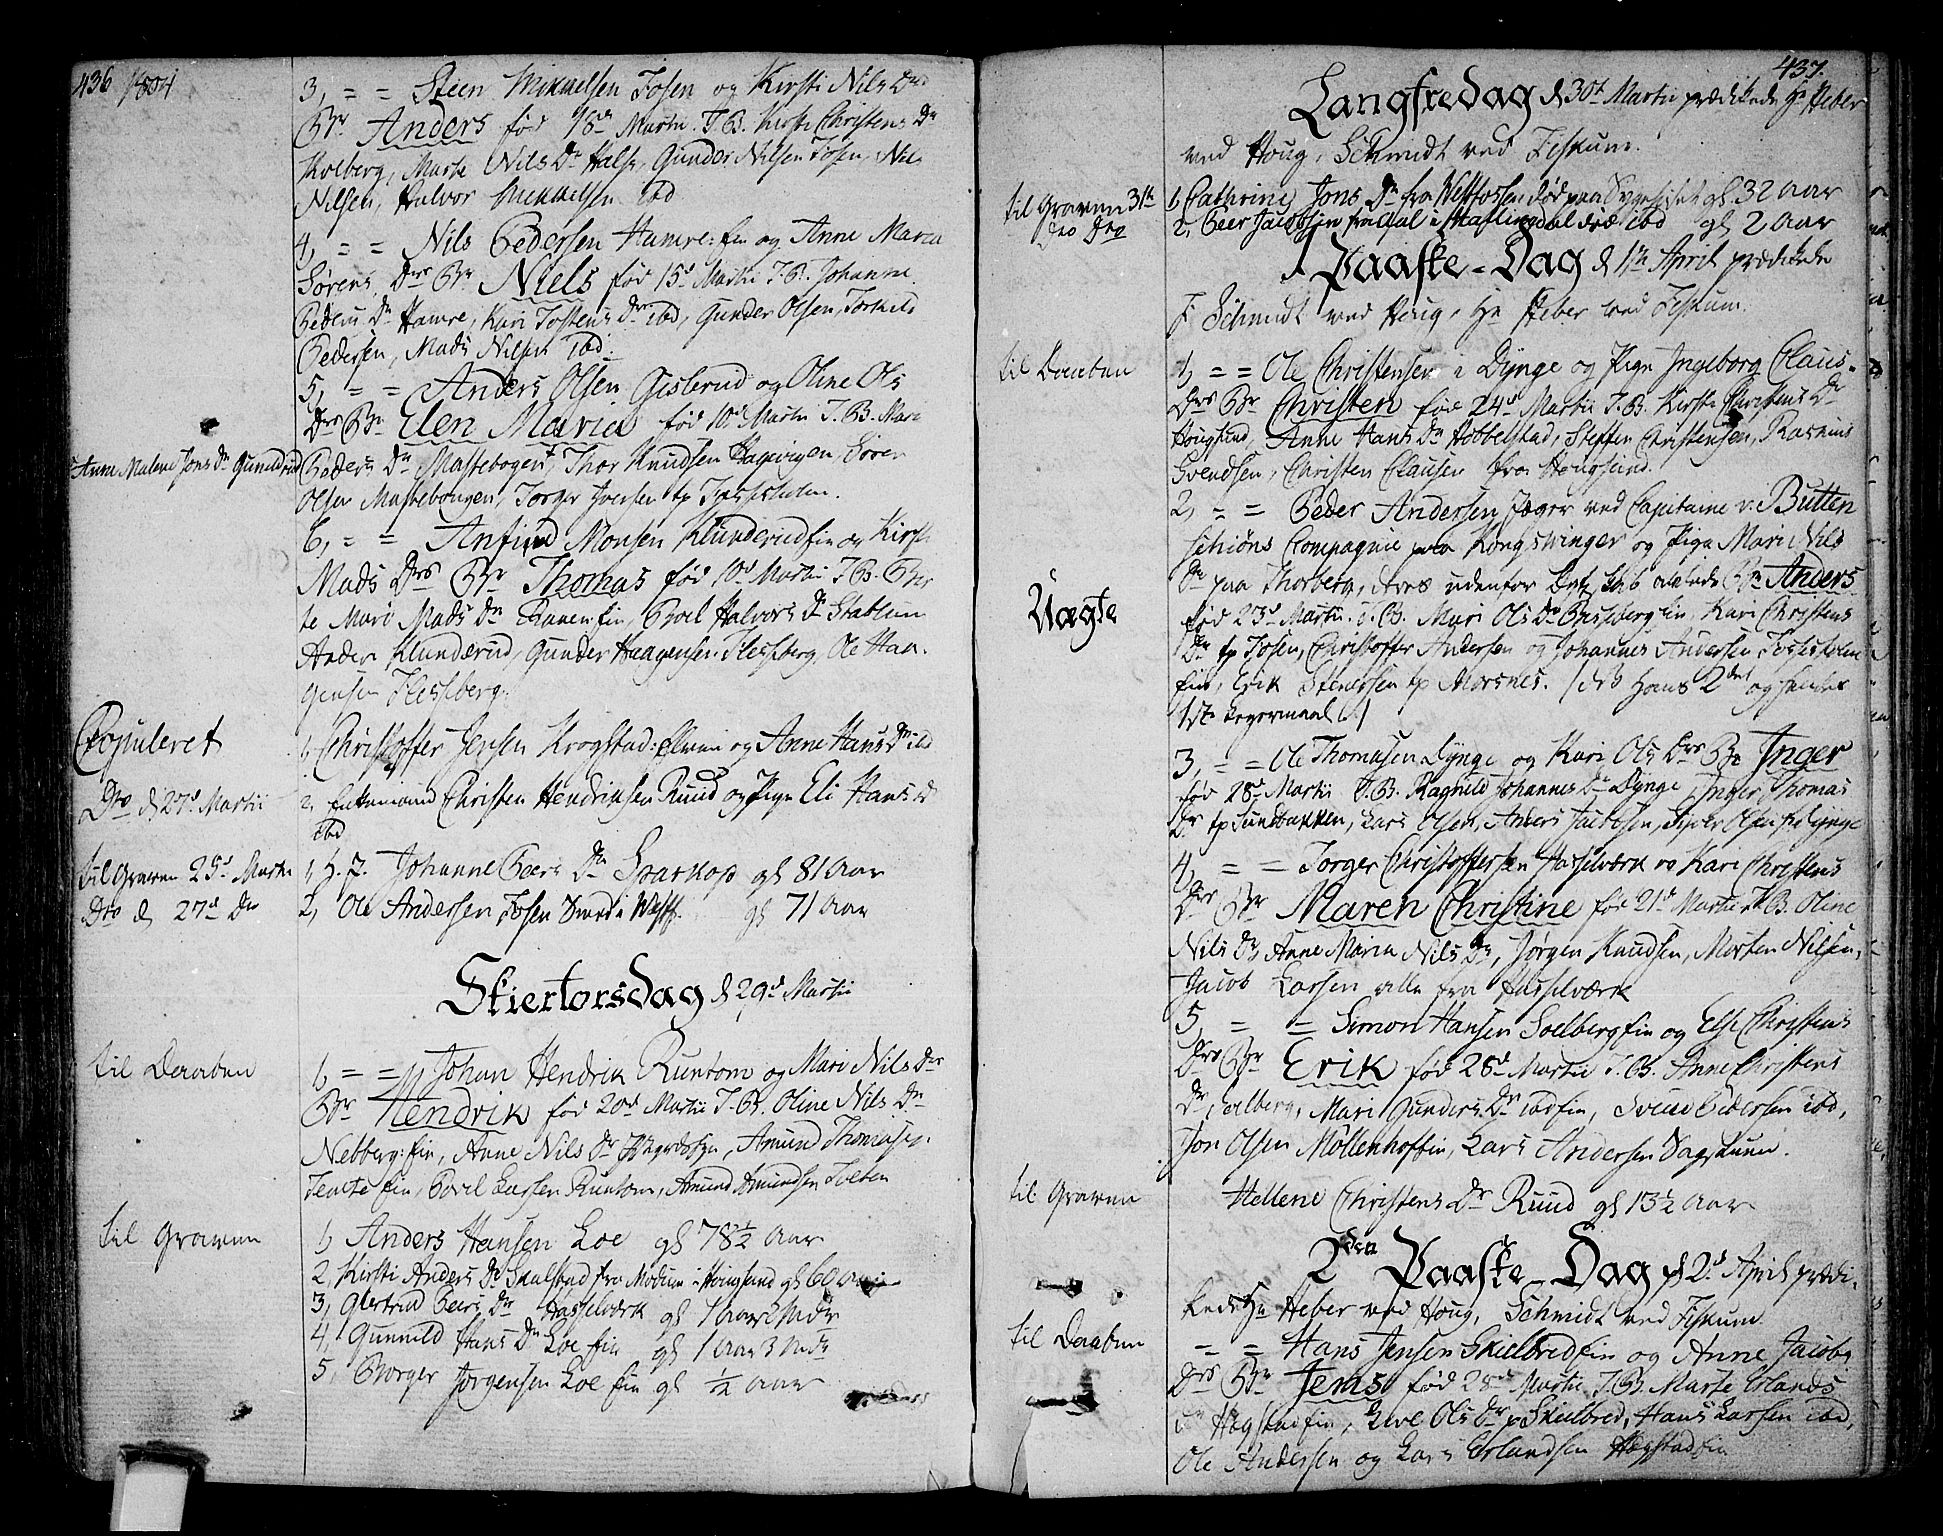 436 1804
3, = = Steen Mikkelsen Fosen og Kirsti Nils Drs
Br Anders fød 18de Martii. T. B. Kirsti Christens Dr
Kolberg, Marte Nils Dr Hals, Gunder Nilsen Fosen, Nils
Nilsen, Halvor Mikkelsen ibd
4, = = Nils Pedersen Hamre: fin og Anne Maria
Sørens Drs Br Niels fød 15d Martii T. B. Johanne
Peders Dr Hamre, Kari Tostens Dr ibd, Gunder Olsen, Torkild
Pedersen, Mads Nilsen ibd
5, = = Anders Olsen Gislerud og Oline Ols
Drs Br Elen Maria fød 10d Martii T. B. Mari
Anne Malene Jons Dr Gunildrud
Peders Dr Mastebogen, Thor Knudsen Hagevigen, Sører
Olsen Mastebougen, Torger Iversen
6, = = Anfind Monsen Klunderud fin og Kirsti
Mads Drs Br Thomas fød 10d Martii T. B. Bir
te Mari Mads Dr Raven fin, Boel Halvors Dr Stablum
Anders Klunderud, Gunder Haagensen Flesseberg, Ole Haa-
gensen Flesseberg.
Copuleret
1, Christoffer Jensen Krogstad: og Anne Hans Dr ibd
Dto d 27d Martii
2, Enkemand Christen Hendriksen Ruud og Pige Eli Hans Dr
ibd
til Graven 25d Martii
1, Johanne Peers Dr Sparkop gl 81 Aar
Dto d 27d Dto
2, Ole Andersen Fosen Smed i Westf. gl 71 Aar
Skiertorsdag d 29d Martii
til Daaben
1, = = Johan Hendrik Runtom og Mari Nils Drs
Br Hendrik fød 20d Martii T. B. Oline Nils Dr
Nebberg: fin, Anne Nils Dr, Amund Thomasen
Temte fin, Povel Larsen Runtom, Amund Amundsen Tveten
til Graven
1, Anders Hansen Loe gl 78½ Aar
2, Kirsti Anders Dr Skalstad fra Modum i Hougsund gl 60 Aar
3, Giertrud Peers Dr Hasselværk gl 1 Aar 2 Mdr
4, Gunnild Hans Dr Loe fin gl 1 Aar 3 Mdr
5, Borger Jørgensen Loe fin gl ½ Aar
437.
Langfredag d 30t Martii prædikede Hr Heber
ved Houg, Schmidt ved Fiskum.
til Graven 31te
1, Cathrine Jons Dr fra Westfossen død paa Sygehuset gl 32 Aar
Dto Dto
2, Peer Jacobsen fra Aal i Hallingdal død ibd gl 2 Aar
1 Paaske-Dag d 1te April prædikede
F. Schmidt ved Houg, Hr Heber ved Fiskum.
til Daaben
1, = = Ole Christensen i Dynge og Pige Ingeborg Claus-
Drs Br Christen fød 24d Martii T. B. Kirsti Christens Dr
Hougsund, Anne Hans Dr Hobbelstad, Steffen Christensen, Rasmus
Svendsen, Christen Clausen fra Hougsund.
2, = = Peder Andersen Jæger ved Capitaine v: Butten
schiøns Compagnie paa Kongswinger og Pige Mari Nils
Uægte
Dr paa Thorberg, deres udenfor Ægteskab avlede Br Anders
fød 23d Martii. T. B. Mari Ols Dr Brusberg fin, Kari Christens
Dr Fosen, Christoffer Andersen og Johannes Andersen
fin, Erik Stenersen Morsnes. / det hans 2det og hendes
1ste Legermaal /
3, = = Ole Thomasen Dynge og Kari Ols Drs Br Inger
fød 28d Martii T. B. Ragnild Johannes Dr Dynge, Inger Thomas
Dr Sundbakken, Lars Olsen, Anders Jacobsen, Olsen Dynge
4, = = Torger Christoffersen Hasselværk og Kari Christens
Drs Br Maren Christine fød 21d Martii T. B. Oline
Nils Dr Anne Maria Nils Dr, Jørgen Knudsen, Morten Nilsen,
Jacob Larsen alle fra Hasselværk
5, = = Simon Hansen Soelberg fin og Else Christens
Drs Br Erik fød 28d Martii T. B. Anne Christens
Dr Soelberg, Mari Gunders Dr ibd fin, Svend Pedersen ibd,
Jon Olsen Möllenhof fin, Lars Andersen Dagsruud.
til Graven
Hellene Christens Dr Ruud gl 13½ Aar
2den Paaske-Dag d 2d April prædi-
kede Hr Heber ved Houg, Schmidt ved Fiskum.
til Daaben
= = Hans Jensen Skielbred fin og Anne Jacobs
Drs Br Jens fød 28d Martii T. B. Marte Erlands
Dr Hægstad fin, Live Ols Dr Skielbred, Hans Larsen ibd,
Ole Andersen og Lars Erlandsen Hægstad fin